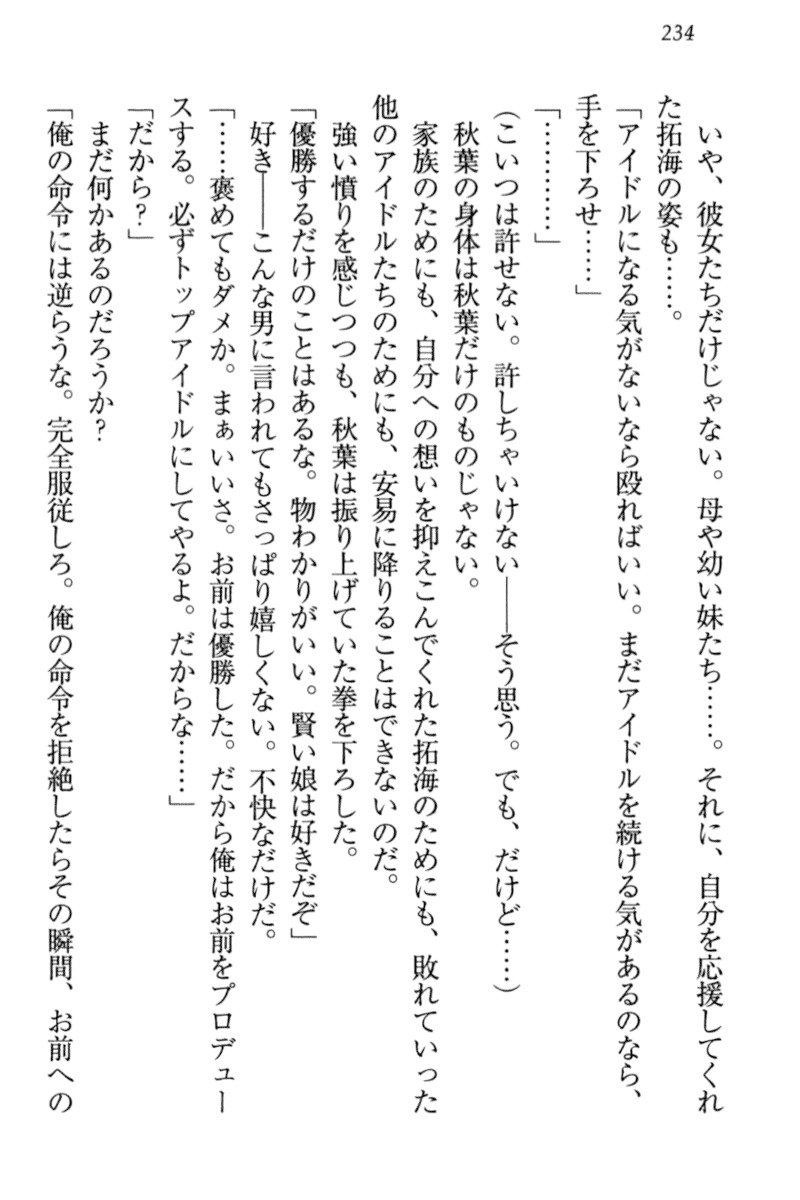 234
いや、彼女たちだけじゃない。母や幼い妹たち……。それに、自分を応援してくれ
た拓海の姿も……。
「アイドルになる気がないなら殴ればいい。まだアイドルを続ける気があるのなら、
手を下ろせ……」
「…………」
(こいつは許せない。許しちゃいけない――そう思う。でも、だけど……)
秋葉の身体は秋葉だけのものじゃない。
家族のためにも、自分への想いを抑えこんでくれた拓海のためにも、敗れていった
他のアイドルたちのためにも、安易に降りることはできないのだ。
強い憤りを感じつつも、秋葉は振り上げていた拳を下ろした。
「優勝するだけのことはあるな。物わかりがいい。賢い娘は好きだぞ」
好き――こんな男に言われてもさっぱり嬉しくない。不快なだけだ。
「……褒めてもダメか。まぁいいさ。お前は優勝した。だから俺はお前をプロデュー
スする。必ずトップアイドルにしてやるよ。だからな……」
「だから?」
まだ何かあるのだろうか?
「俺の命令には逆らうな。完全服従しろ。俺の命令を拒絶したらその瞬間、お前への